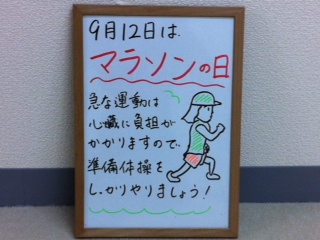 9月12日は
マラソンの日
急な運動は
心臓に負担が
かかりますので
準備体操を
しっかりやりましょう!